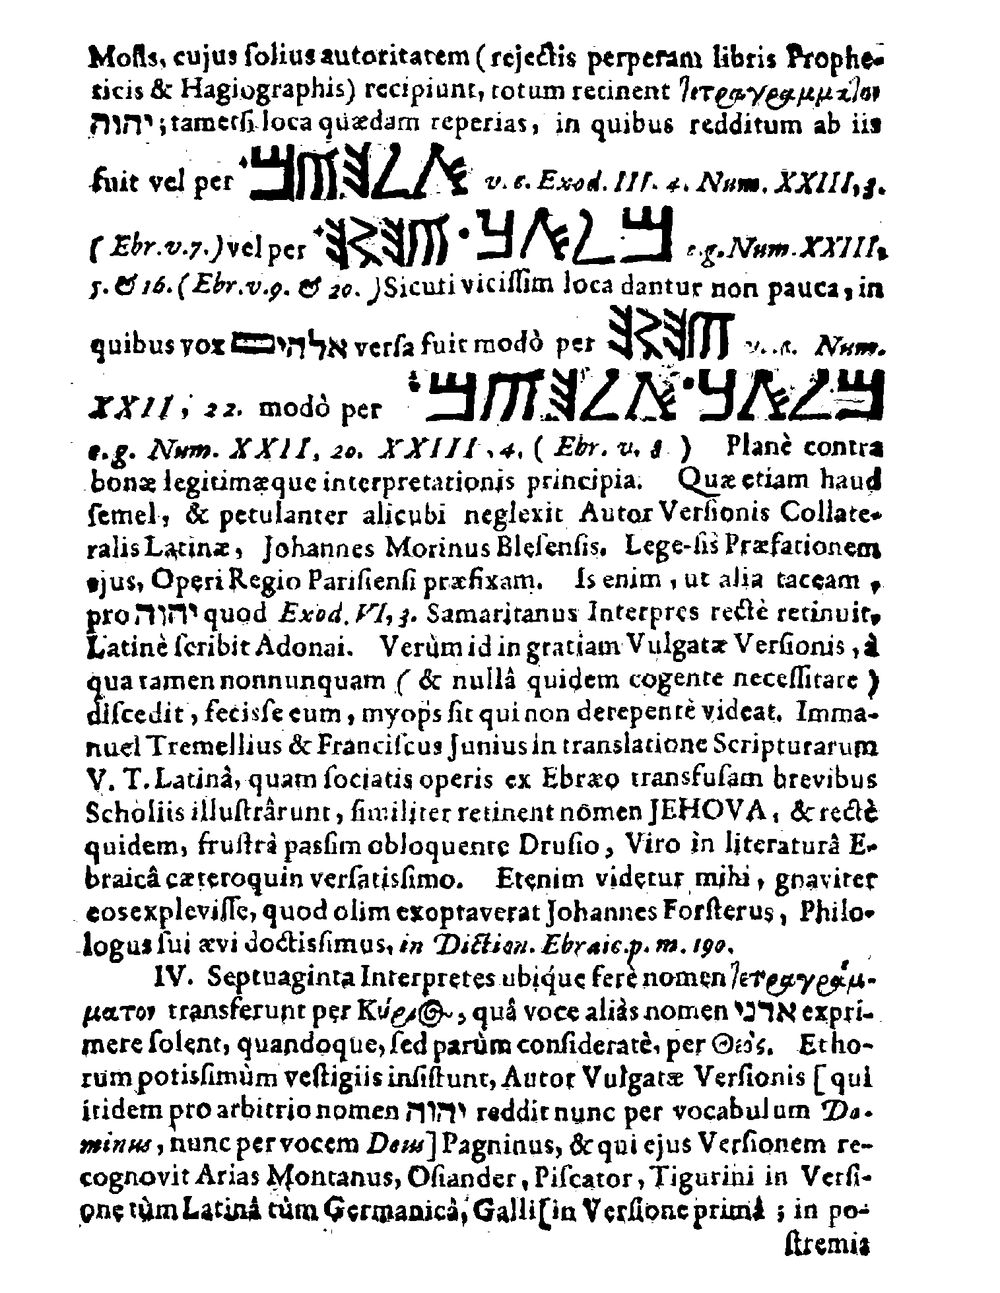 Mosis, cujus ſolius autoritatem (rejectis perperam libris Prophe-
ticis & Hagiographis) recipiunt, totum retinent Τετραγράμματον
יהוה; tametſi loca quædam reperias, in quibus redditum ab iis
fuit vel per v. e. Exod. III. 4. Num. XXIII, 3.
(Ebr. v. 7.) vel per e. g. Num. XXIII,
5. & 16. (Ebr. v. 9. & 20.) Sicuti viciſſim loca dantur non pauca, in
quibus vox אלהים verſa fuit modò per Num.
XXII, 22. modò per
e. g. Num. XXII, 20. XXIII, 4. (Ebr. v. ) Planè contra
bonæ legitimæque interpretationis principia. Quæ etiam haud
ſemel, & petulanter alicubi neglexit Autor Verſionis Collate-
ralis Latinæ, Johannes Morinus Bleſenſis. Lege-ſis Præfationem
ejus, Operi Regio Pariſienſi præfixam. Is enim, ut alia taceam,
pro יהוה quod Exod. VI, 3. Samaritanus Interpres rectè retinuit,
Latinè ſcribit Adonai. Verùm id in gratiam Vulgatæ Verſionis, à
qua tamen nonnunquam (& nullâ quidem cogente neceſſitate)
diſcedit, feciſſe eum, myops ſit qui non derepentè videat. Imma-
nuel Tremellius & Franciſcus Junius in translatione Scripturarum
V. T. Latinâ, quam ſociatis operis ex Ebræo transfuſam brevibus
Scholiis illuſtrârunt, ſimiliter retinent nomen JEHOVA, & rectè
quidem, fruſtrà paſſim obloquente Druſio, Viro in literaturâ E-
braicâ cæteroquin verſatisſimo. Etenim videtur mihi, gnaviter
eos expleviſſe, quod olim exoptaverat Johannes Forſterus, Philo-
logus ſui ævi doctisſimus, in Diction. Ebraic. p. m. 190.
IV. Septuaginta Interpretes ubique ferè nomen Τετραγράμ-
ματον transferunt per Κύριος, quâ voce aliàs nomen אדני expri-
mere ſolent, quandoque, ſed parùm conſideratè, per Θεός. Et ho-
rum potisſimùm veſtigiis inſiſtunt, Autor Vulgatæ Verſionis [qui
itidem pro arbitrio nomen יהוה reddit nunc per vocabulum Do-
minus, nunc per vocem Deus] Pagninus, & qui ejus Verſionem re-
cognovit Arias Montanus, Oſiander, Piſcator, Tigurini in Verſi-
one tùm Latinâ tùm Germanicâ, Galli [in Verſione primâ; in po-
ſtremis